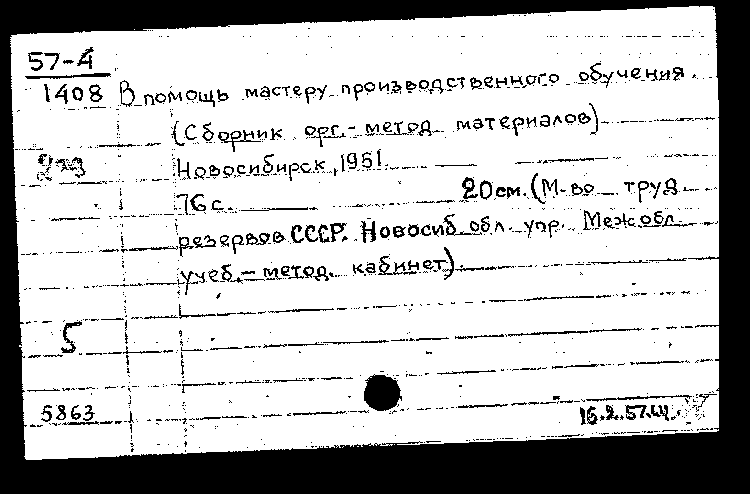 57-4
1408 В помощь мастеру производственного обучения.
(Сборник орг.- метод. материалов)
2 экз
Новосибирск, 1951.
76 с. 20 см. (М-во труд.
резервов СССР. Новосиб. обл. упр. Межобл.
учеб.- метод. кабинет).
5
5863